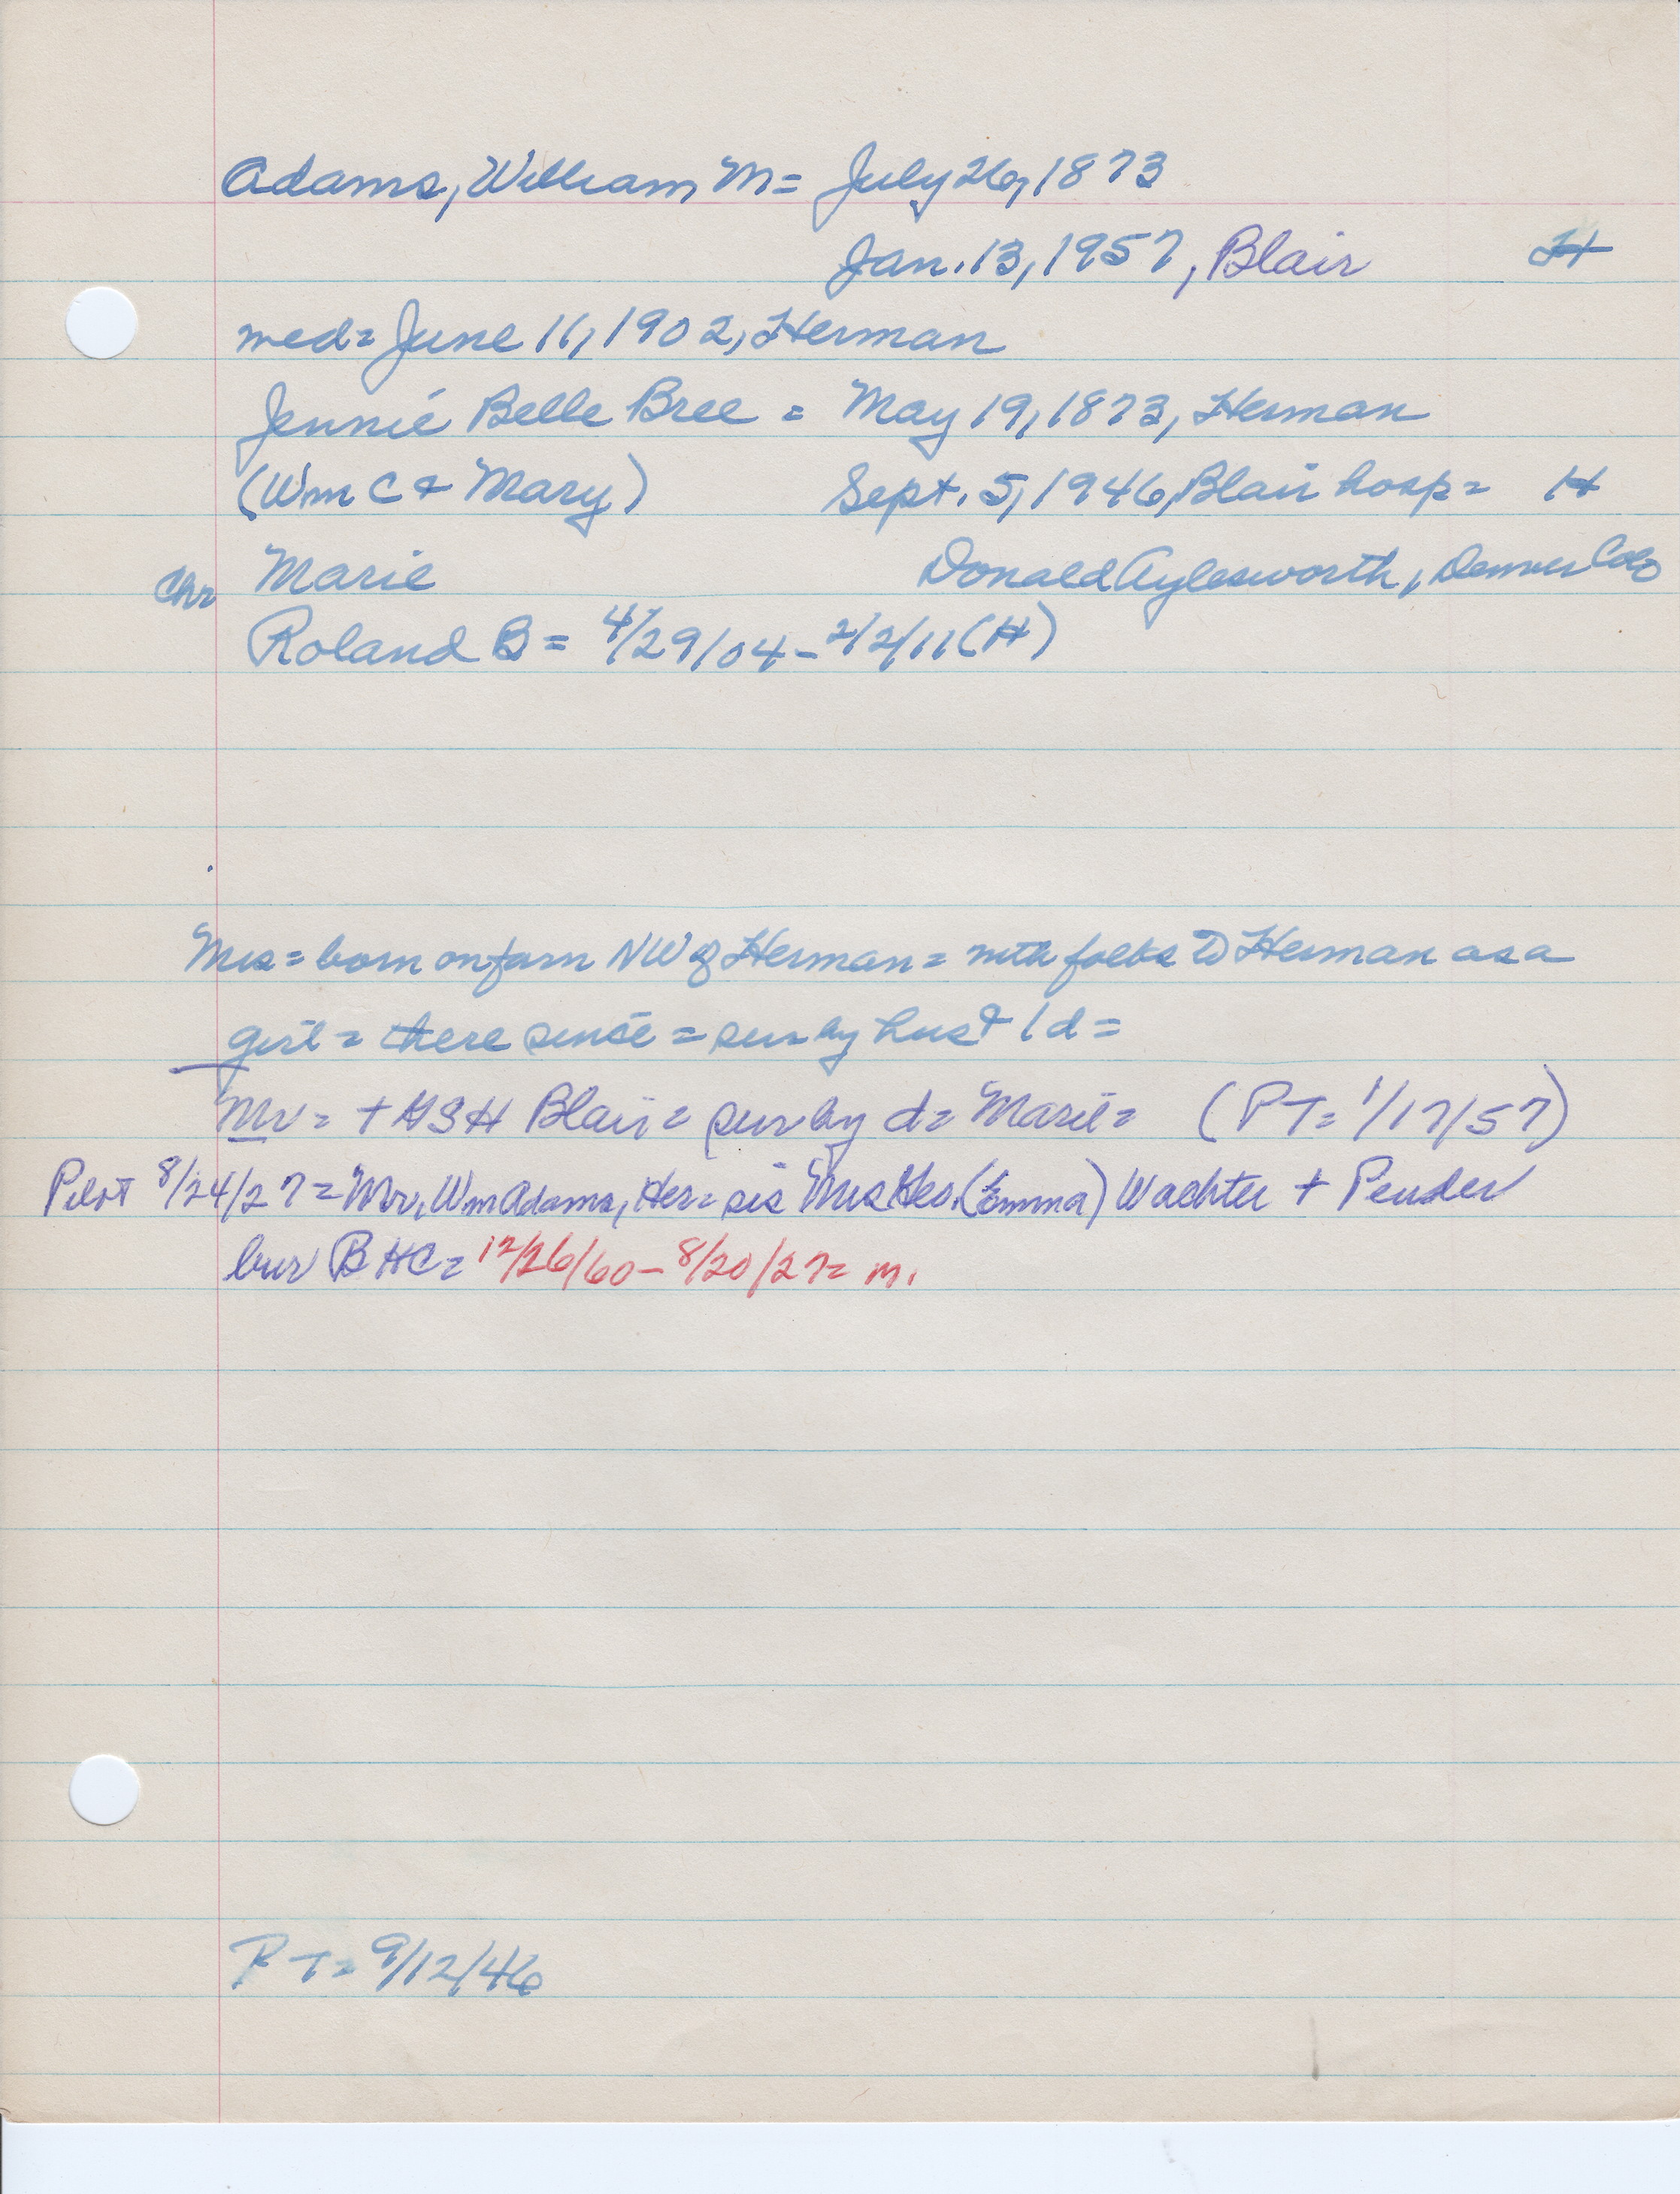 Adams, William M = July 26, 1873
Jan. 13, 1957, Blair H
med = June 11, 1902, Herman
Jennie Belle Bree = May 19, 1873, Herman
(Wm C & Mary) Sept. 5, 1946, Blair hosp = H
Chr Marie Donald Aylesworth, Denver Colo
Roland B = 4/29/04 - 2/2/11 (H)
Mrs = born on farm NW of Herman = with folks to Herman as a
girl = there since = sur by hus & 1 d =
Mr = + Blair = sur by d = Marie = (PT = 1/17/57)
Pilot 8/24/27 = Mr. Wm Adams, Her = sis Mrs Geo. (Emma) Wachter + Pender
bur BHC = 12/26/60 - 8/20/27 = m.
PT = 9/12/46